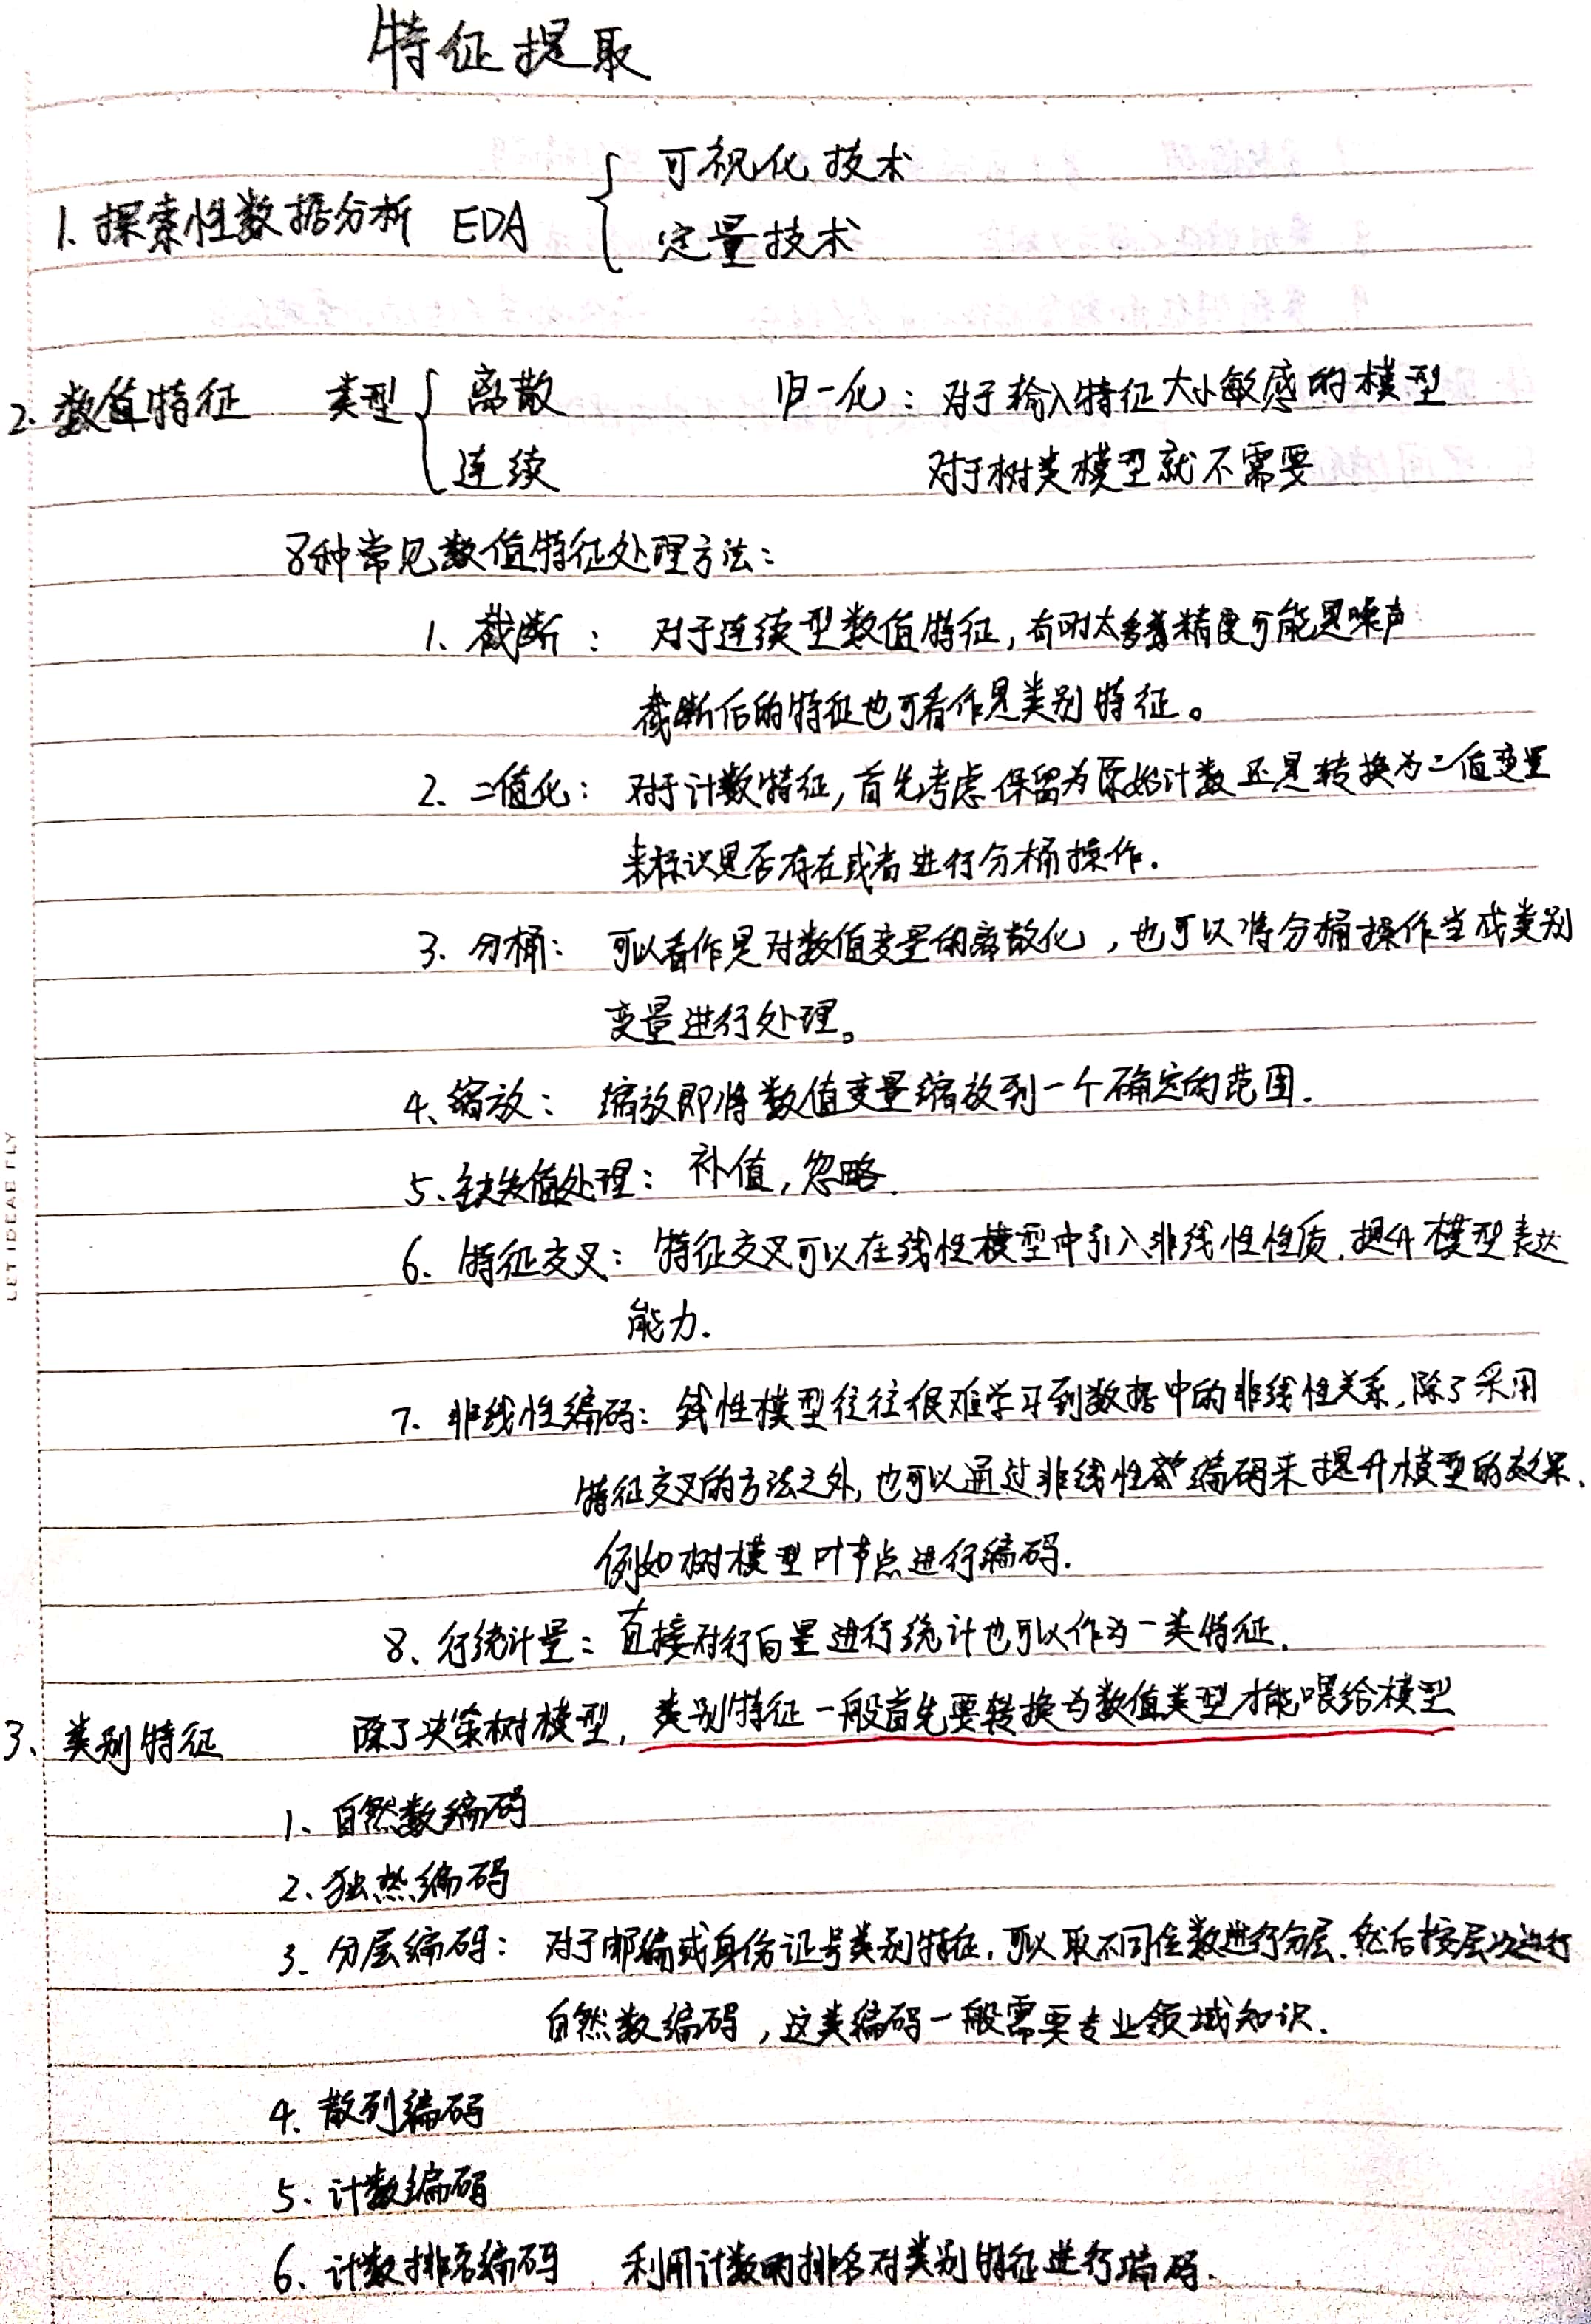 特征提取
可视化技术
1. 探索性数据分析 EDA
定量技术
2. 数值特征 类型 离散 归一化：对于输入特征大小敏感的模型
连续 对于树类模型就不需要
8种常见数值特征处理方法：
1. 截断： 对于连续型数值特征，有时太多精度可能是噪声
截断后的特征也可看作是类别特征。
2. 二值化： 对于计数特征，首先考虑保留为原始计数还是转换为二值变量
来标识是否存在或者进行分桶操作.
3. 分桶： 可以看作是对数值变量的离散化，也可以将分桶操作当成类别
变量进行处理。
4、缩放： 缩放即将数值变量缩放到一个确定的范围.
5、缺失值处理： 补值，忽略.
6、特征交叉： 特征交叉可以在线性模型中引入非线性性质.提升模型表达
能力.
7. 非线性编码：线性模型往往很难学习到数据中的非线性关系,除了采用
特征交叉的方法之外,也可以通过非线性编码来提升模型的效果.
例如树模型叶节点进行编码.
8、行统计量：直接对行向量进行统计也可以作为一类特征.
3、类别特征 除了决策树模型，类别特征一般首先要转换为数值类型才能喂给模型
1、自然数编码
2、独热编码
3. 分层编码： 对于邮编或身份证号类别特征，可以取不同位数进行分层.然后按层次进行
自然数编码，这类编码一般需要专业领域知识.
4. 散列编码
5. 计数编码
6、计数排名编码 利用计数的排名对类别特征进行编码.
LET IDEAE FLY